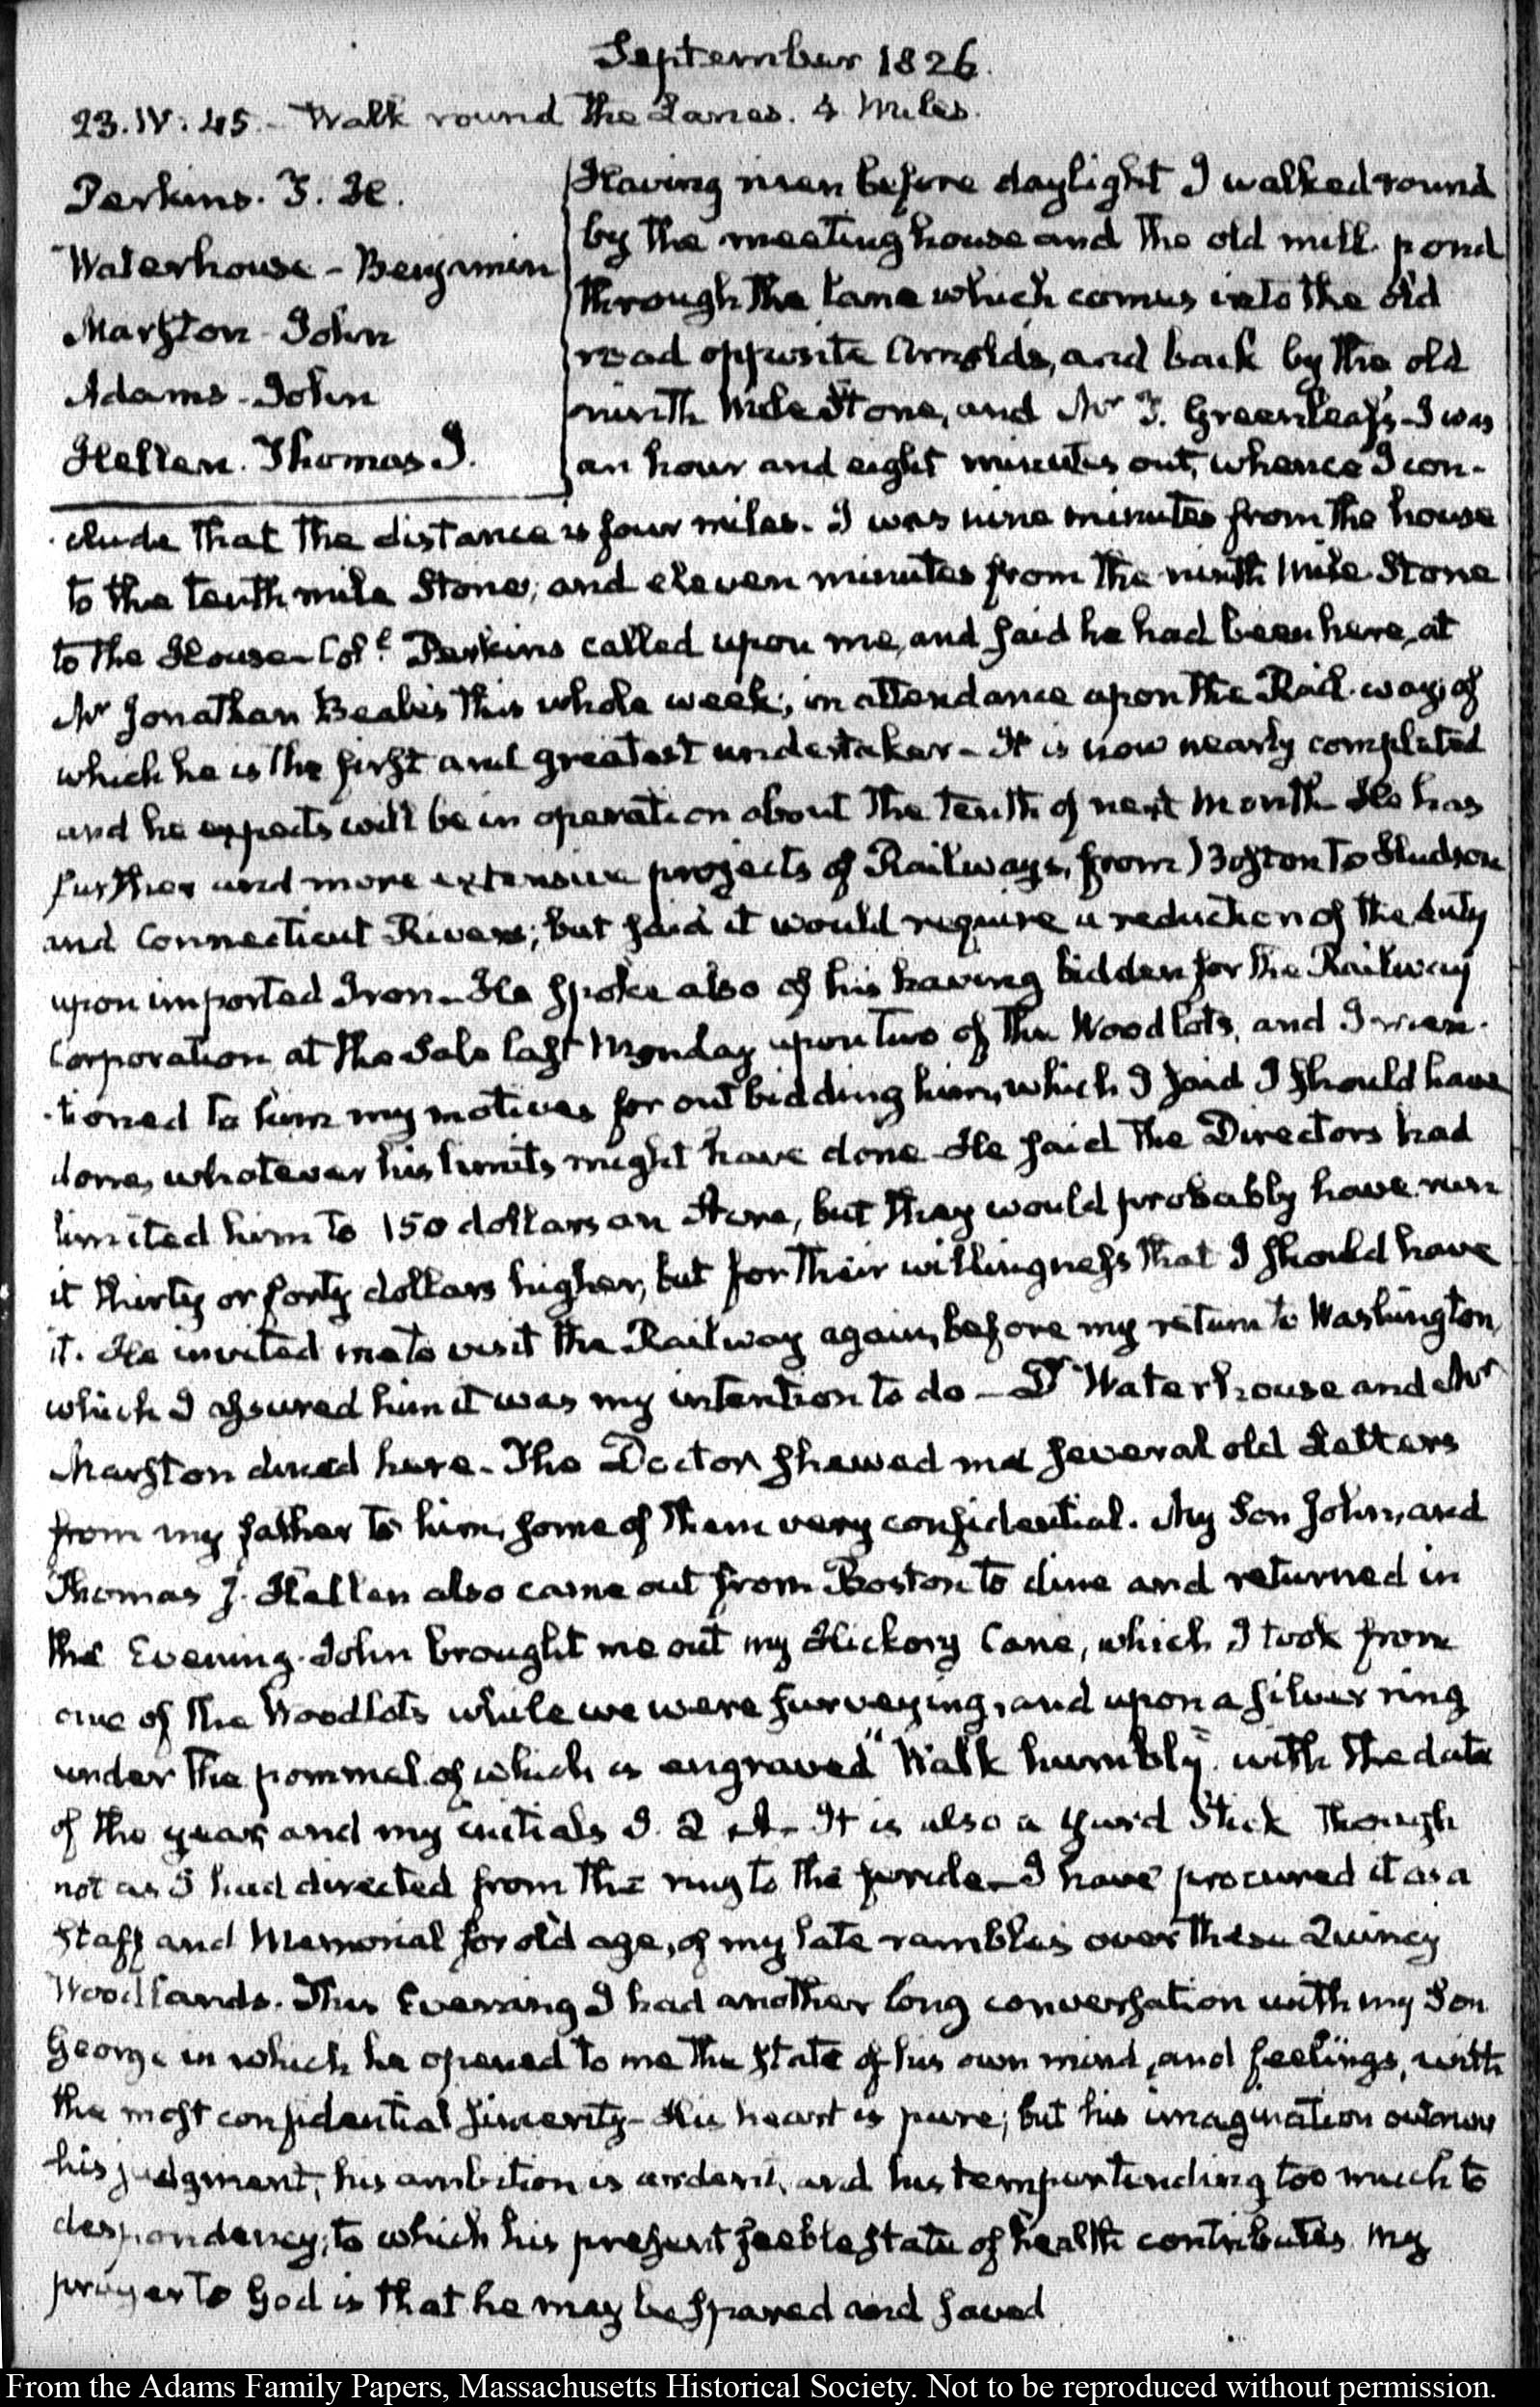 September 1826.
23. IV: 45. – Walk round the Lanes. 4 Miles.
Perkins. T. H.
Waterhouse – Benjamin
Marston – John
Adams – John
Hellen. Thomas J.
Having risen before daylight I walked round
by the meeting house and the old mill pond
through the lane which comes into the old
road opposite Arnolds, and back by the old
ninth Mile Stone, and Mr T. Greenleaf's – I was
an hour and eight minutes out, whence I con-
clude that the distance is four miles. I was nine minutes from the house
to the tenth mile Stone, and eleven minutes from the ninth Mile Stone
to the House – Col.l Perkins called upon me, and said he had been here, at
Mr Jonathan Beale's this whole week, in attendance upon the Rail-way, of
which he is the first and greatest undertaker – It is now nearly completed
and he expects will be in operation about the tenth of next Month – He has
further and more extensive projects of Railways, from Boston to Hudson
and Connecticut Rivers; but said it would require a reduction of the duty
upon imported Iron – He spoke also of his having bidden for the Railway
Corporation at the Sale last Monday upon two of the Woodlots, and I men-
tioned to him my motives for outbidding him, which I said I should have
done, whatever his limits might have done – He said the Directors had
limited him to 150 dollars an Acre, but they would probably have run
it thirty or forty dollars higher, but for their willingness that I should have
it. He invited me to visit the Railway again, before my return to Washington,
which I assured him it was my intention to do – Dr Waterhouse and Mr
Marston dined here – The Doctor shewed me several old Letters
from my father to him, some of them very confidential. My Son John, and
Thomas J. Hellen also came out from Boston to dine and returned in
the Evening. John brought me out my Hickory Cane, which I took from
one of the Woodlots while we were surveying, and upon a silver ring
under the pommel of which is engraved "Walk humbly" with the date
of the year, and my initials J. Q. A – It is also a yard Stick though
not as I had directed from the ring to the – I have procured it as a
Staff and Memorial for old age, of my late rambles over these Quincy
Woodlands. This Evening I had another long conversation with my Son
George in which he opened to me the state of his own mind, and feelings, with
the most confidential sincerity – His heart is pure; but his imagination outruns
his judgment, his ambition is ardent, and his temper tending too much to
despondency; to which his present feeble state of health contributes. My
prayer to God is that he may be spared and saved
From the Adams Family Papers, Massachusetts Historical Society. Not to be reproduced without permission.